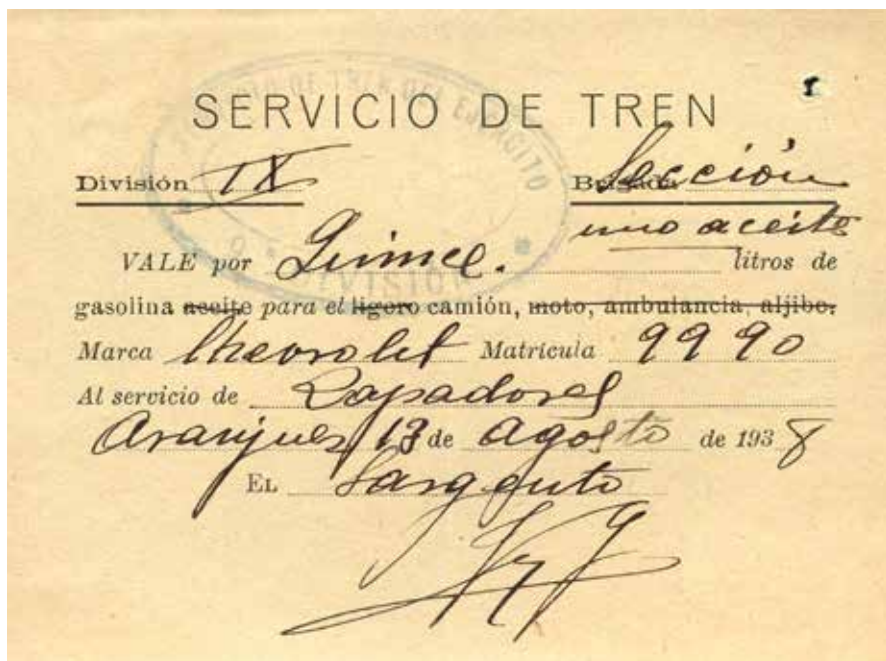 SERVICIO DE TREN
División IX Brigada Sección
uno aceite
VALE por Quince. litros de
gasolina aceite para el ligero camión, moto, ambulancia, aljibe.
Marca Chevrolet Matrícula 9990
Al servicio de Zapadores
Aranjuez 13 de agosto de 1938
EL Sargento
DE TREN DEL EJÉRCITO
DIVISIÓN